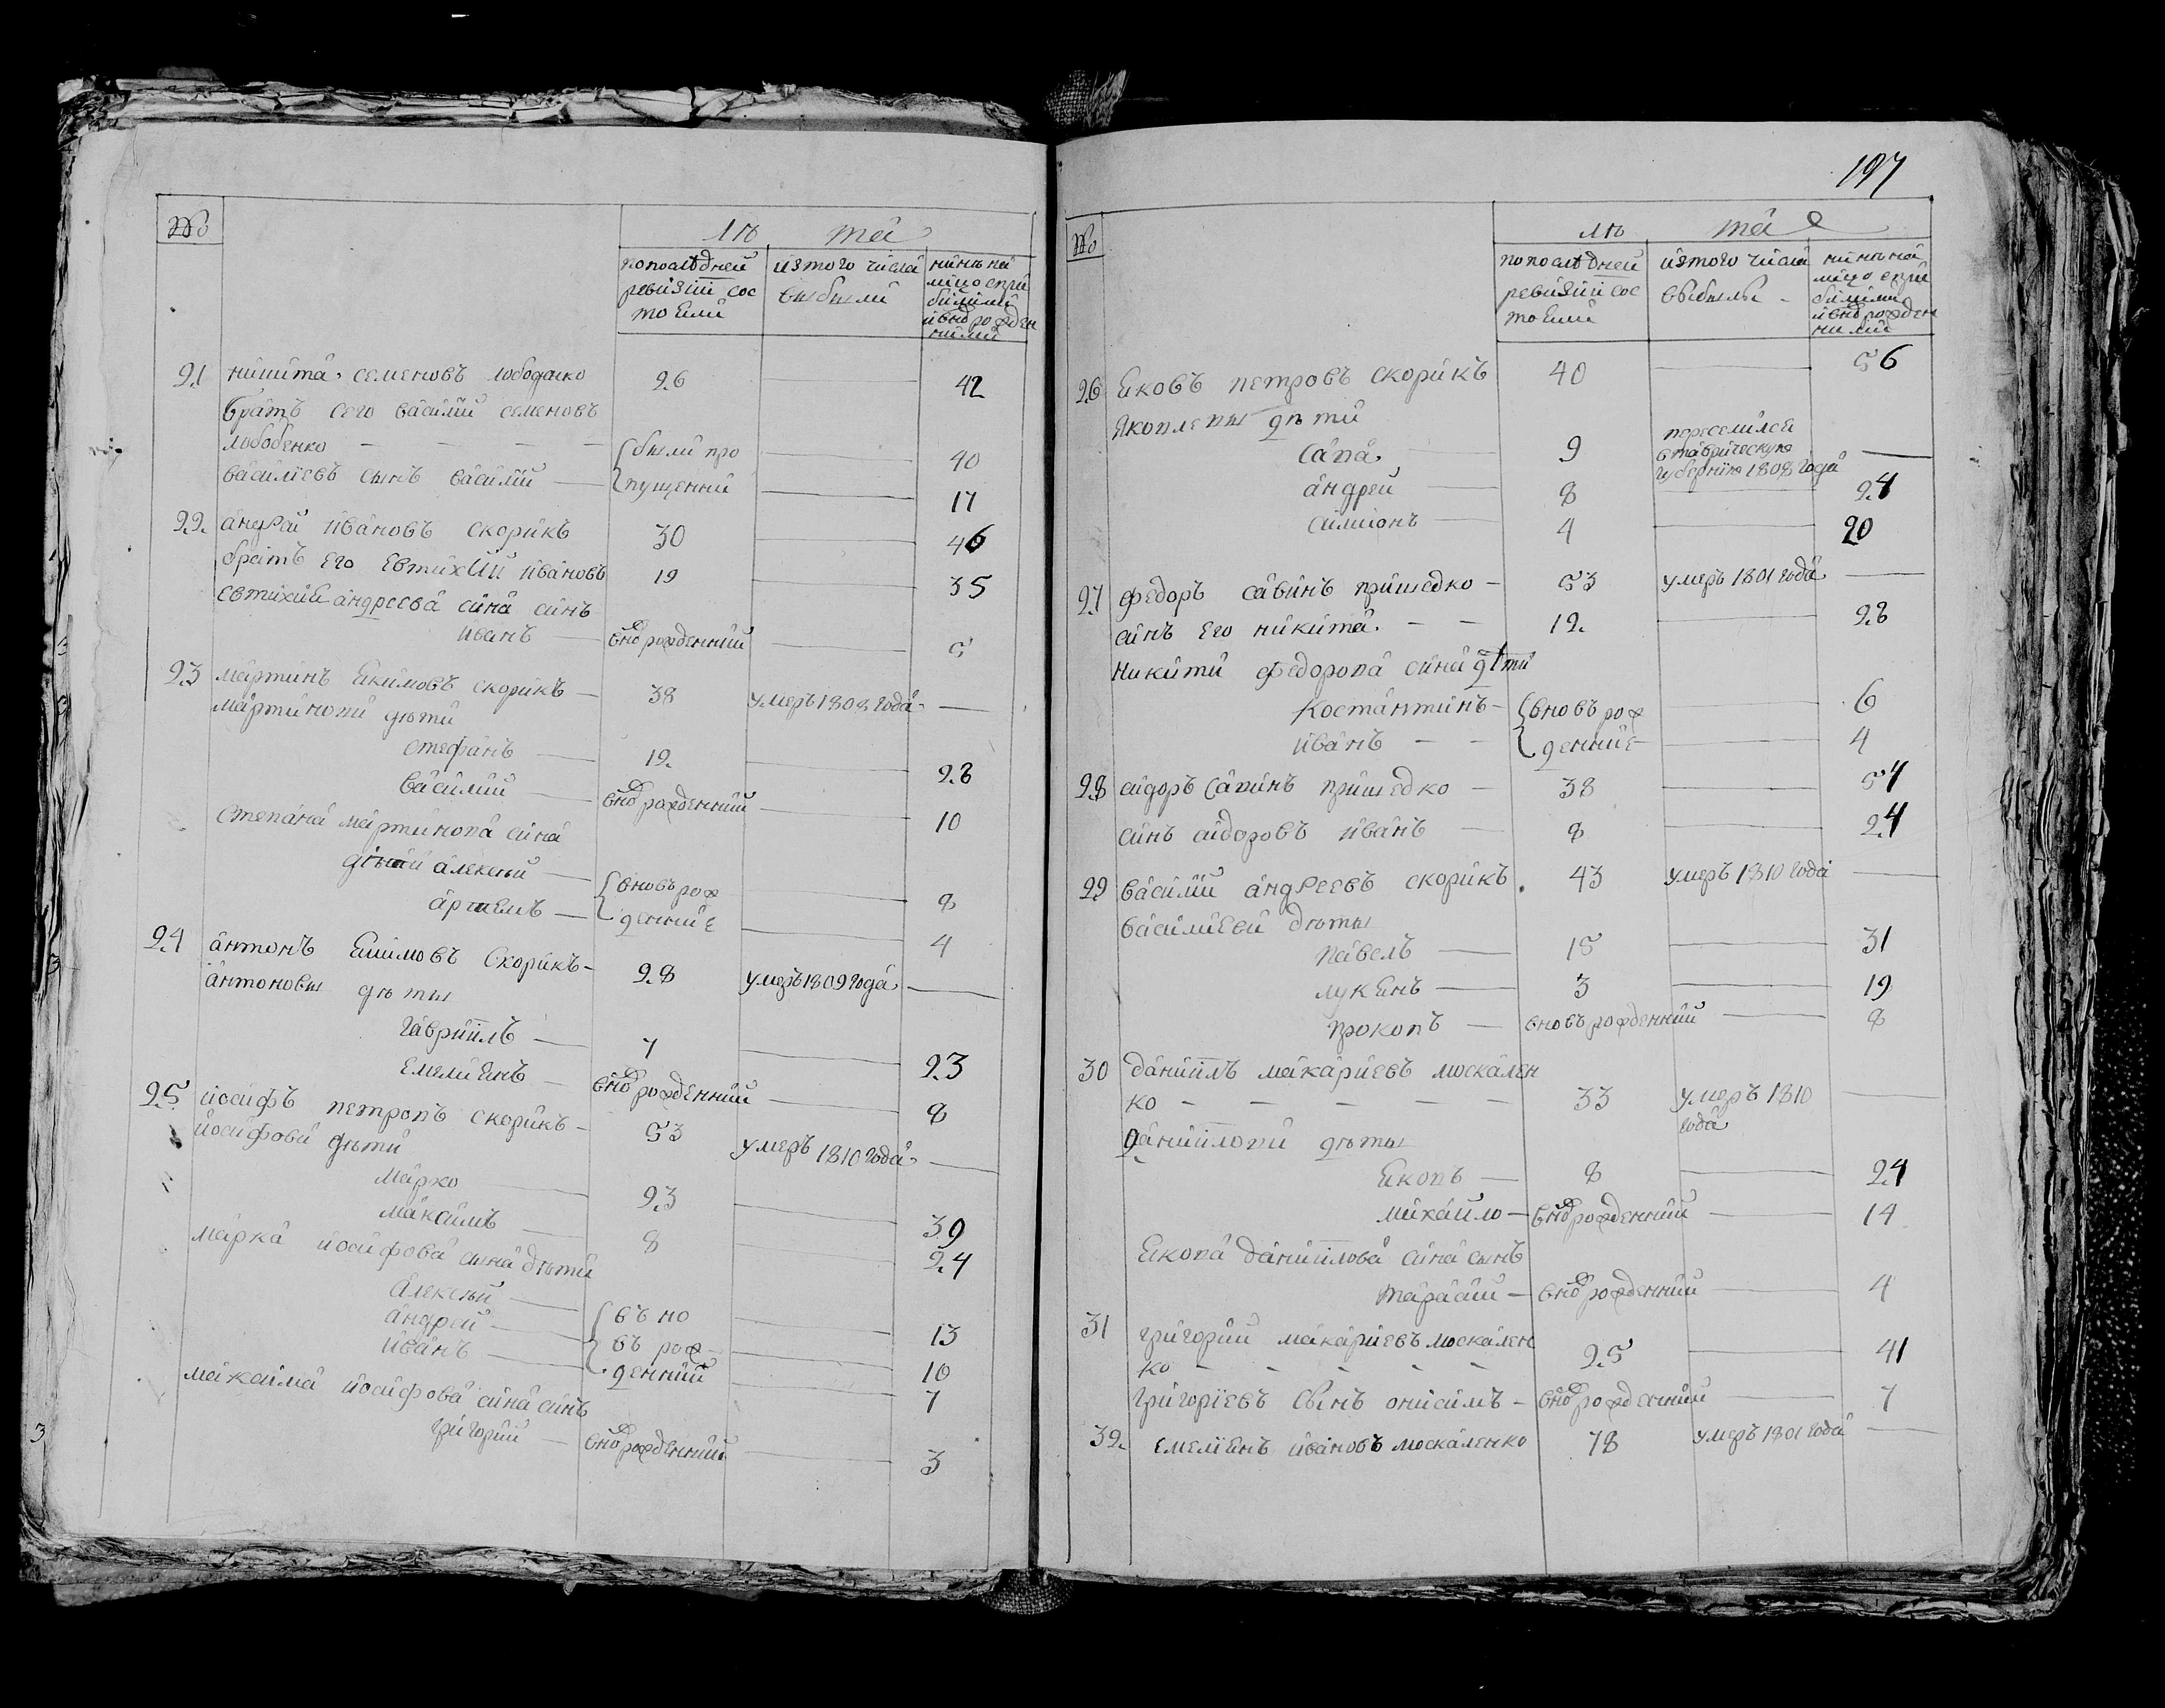 №
лѣ та
попослѣдней ревизіи сос тоЕли
изтого числа выбыли
нинѣ на лицо спри былими ивнов рожден ними
21 никита семеновъ лободенко 26 — 42
братъ сего василій семеновъ
лободенко — — — — были про — 40
василіевъ сынъ василій — пущенній — 17
22. андрей ивановъ скорикъ 30 — 46
братъ его Евтихій ивановъ 19 — 35
Евтихия андреева сина синъ
иванъ — внов рожденній — 5
23 мартинъ Екимовъ скорикъ — 38 умеръ 1808 года —
мартинови дѣти
стефанъ — 12. — 28
василий — внов рожденний — 10
степана мартинова сина
дѣтей алексѣй — вновъ рож — 8
артемъ — денние — 4
24 антонъ Екимовъ Скорикъ — 28 умеръ 1809 года —
антоновы дѣты
гавріилъ — 7 — 23
Емелиянъ — внов рожденний — 8
25 иосифъ петровъ скорикъ — 53 умеръ 1810 года —
иосифови дѣти
марко — 23 — 39
максимъ — 8 — 24
марка иосифова сына дѣти
Алексѣй — въ но — 13
андрей — въ рож — 10
иванъ — денний — 7
максима иосифова сина синъ
григорий — внов рожденний — 3
197
№
лѣ та
попослѣдней ревизіи сос тоЕли
изтого числа выбылы
нинѣ на лицо спри былими ивнов рожден ними
26 Яковъ петровъ скорикъ 40 — 56
Яковлевы дѣти
Сава — 9 переселился втаврическую губернию 1808 года —
андрей — 8 — 24
симионъ — 4 — 20
27 федоръ савинъ пришедко — 53 умеръ 1801 года —
синъ Его никита. — — 12. — 28
никити федорова сина дѣти
Костантинъ — вновъ рож — 6
иванъ — — денние — 4
28 сидоръ Савинъ пришедко — 38 — 54
синъ сидоровъ иванъ — 8 — 24
29 василий андреевъ скорикъ. 43 умеръ 1810 года —
василиеви дѣты
павелъ — 15 — 31
лукЕнъ — 3 — 19
прокопъ — вновъ рожденний — 8
30 даниилъ макариевъ москален
ко — — — — — 33 умеръ 1810 года —
данииловы дѣты
Яковъ — 8 — 24
михайло — внов рожденний — 14
Якова даниилова сина сынъ
тарасий — внов рожденний — 4
31 григорий макариевъ москален
ко — — — — — 25 — 41
григориевъ сынъ онисимъ — внов рожденний — 7
32. Емелиянъ ивановъ москаленко 78 умеръ 1801 года —